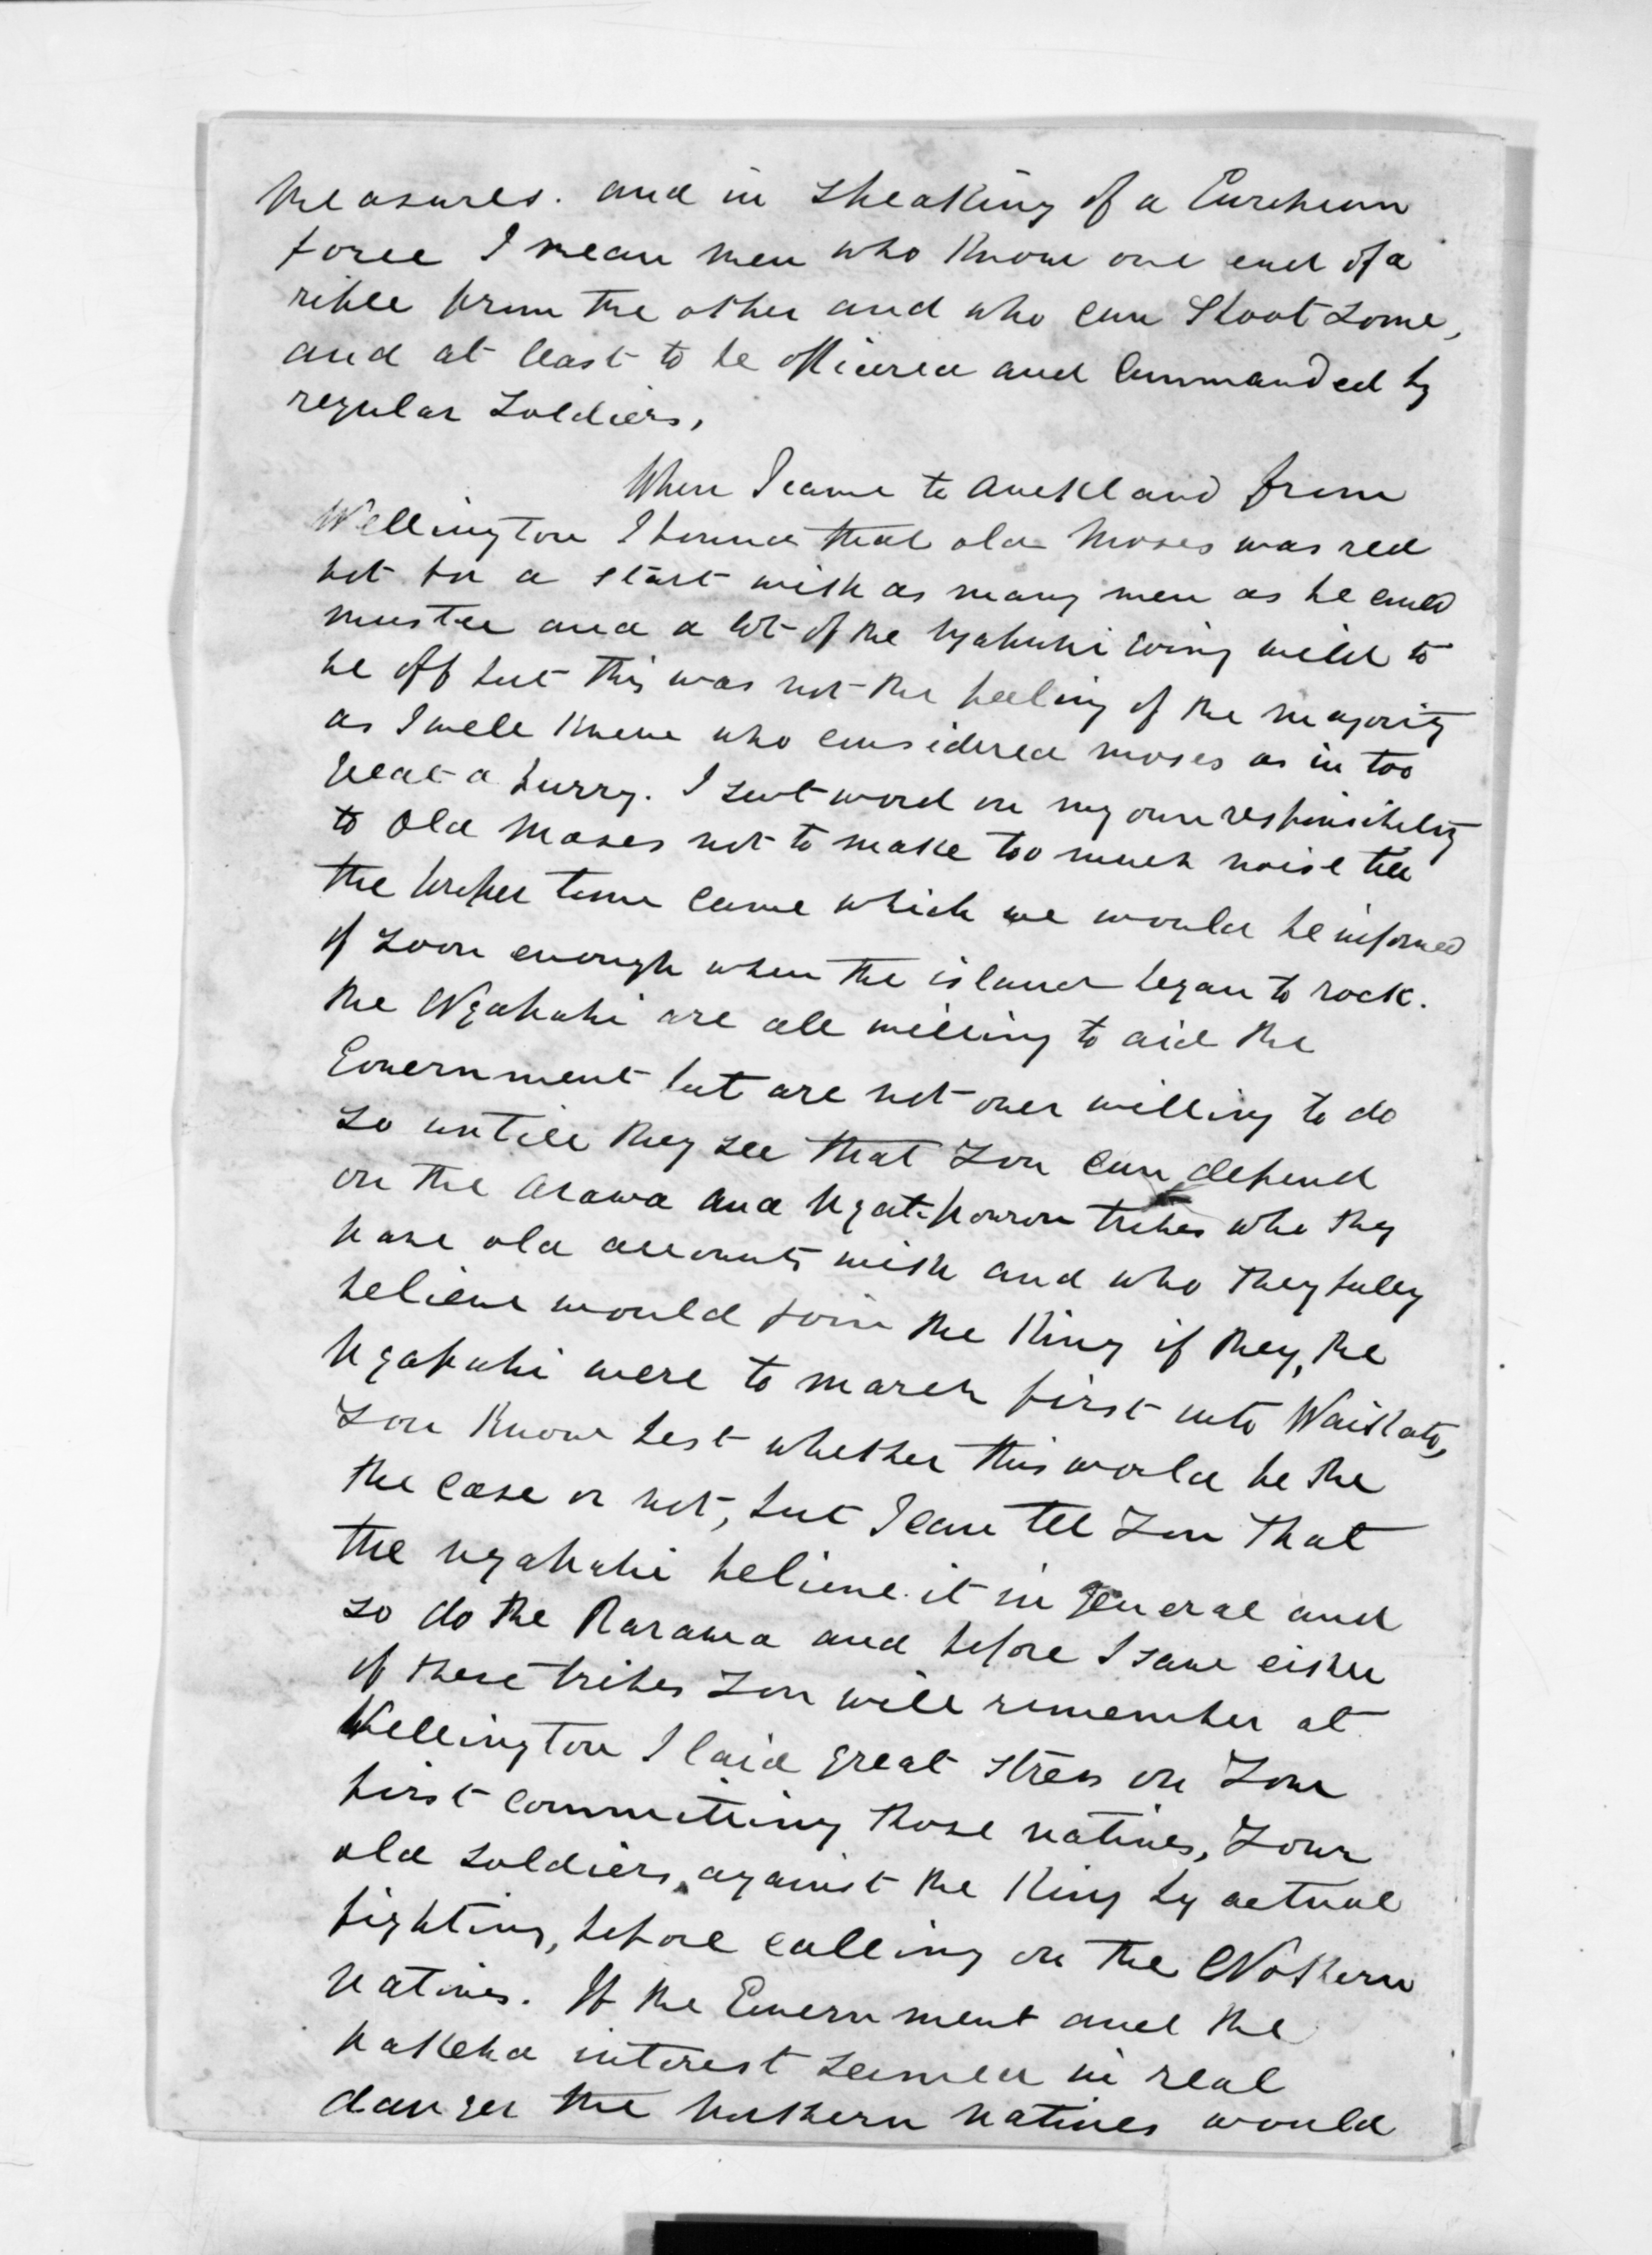 measures. and in speaking of a European
force I mean men who know one end of a
rifle from the other and who can Shoot some,
and at least to be officered and Commanded by
regular soldiers,
When I came to Auckland from
Wellington I found that old Moses was red
hot for a start with as many men as he could
muster and a lot of the Ngapuhi going wild to
be off but this was not the feeling of the majority
as I well knew who considered moses as in too
great a hurry. I sent word on my own responsibility
to Old Moses not to make too much noise till
the proper time came which we would be informed
of soon enough when the island began to rock.
the Ngapuhi are all willing to aid the
Government but are not over willing to do
so untill they see that you can depend
on the Arawa and Ngatiporou tribes who they
have old accounts with and who they fully
believe would join the King if they, the
Ngapuhi were to march first into Waikato,
you know best whether this would be the
the case or not, but I can tell you that
the ngapuhi believe it in general and
so do the Rarawa and before I saw either
of these tribes you will remember at
Wellington I laid great stress on your
first committing those natives, your
old soldiers, against the King by actual
fighting, before calling on the Nothern
natives. If the Government and the
pakeha interest seemed in real
danger the northern natives would